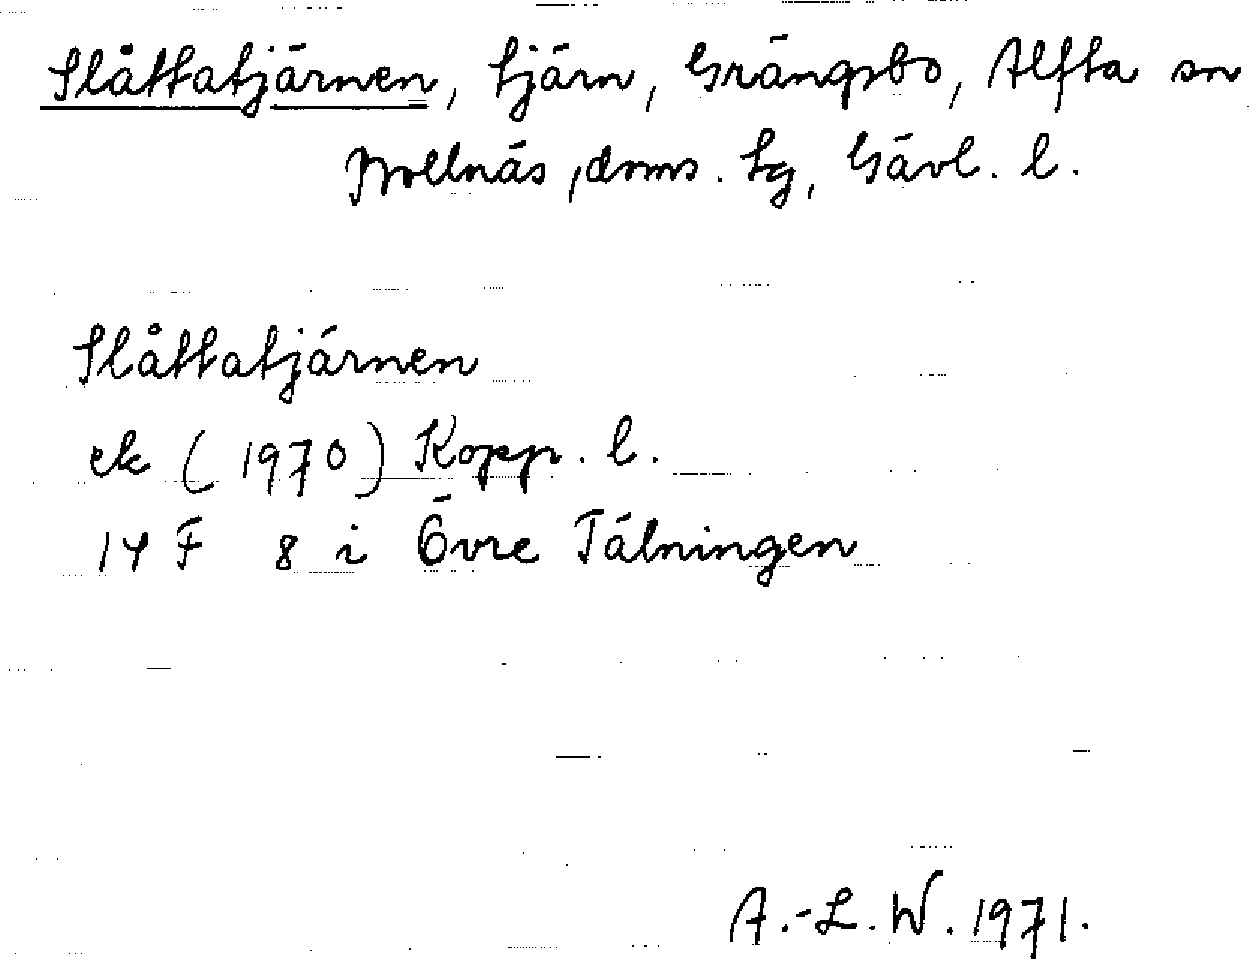 Slåttatjärnen, tjärn, Grängsbo, Alfta sn
Bollnäs, doms. tg, Gävl. l.
Slåttatjärnen
ek (1970) Kopp. l.
14 F 8 i Övre Tälningen
A.-L. W. 1971.